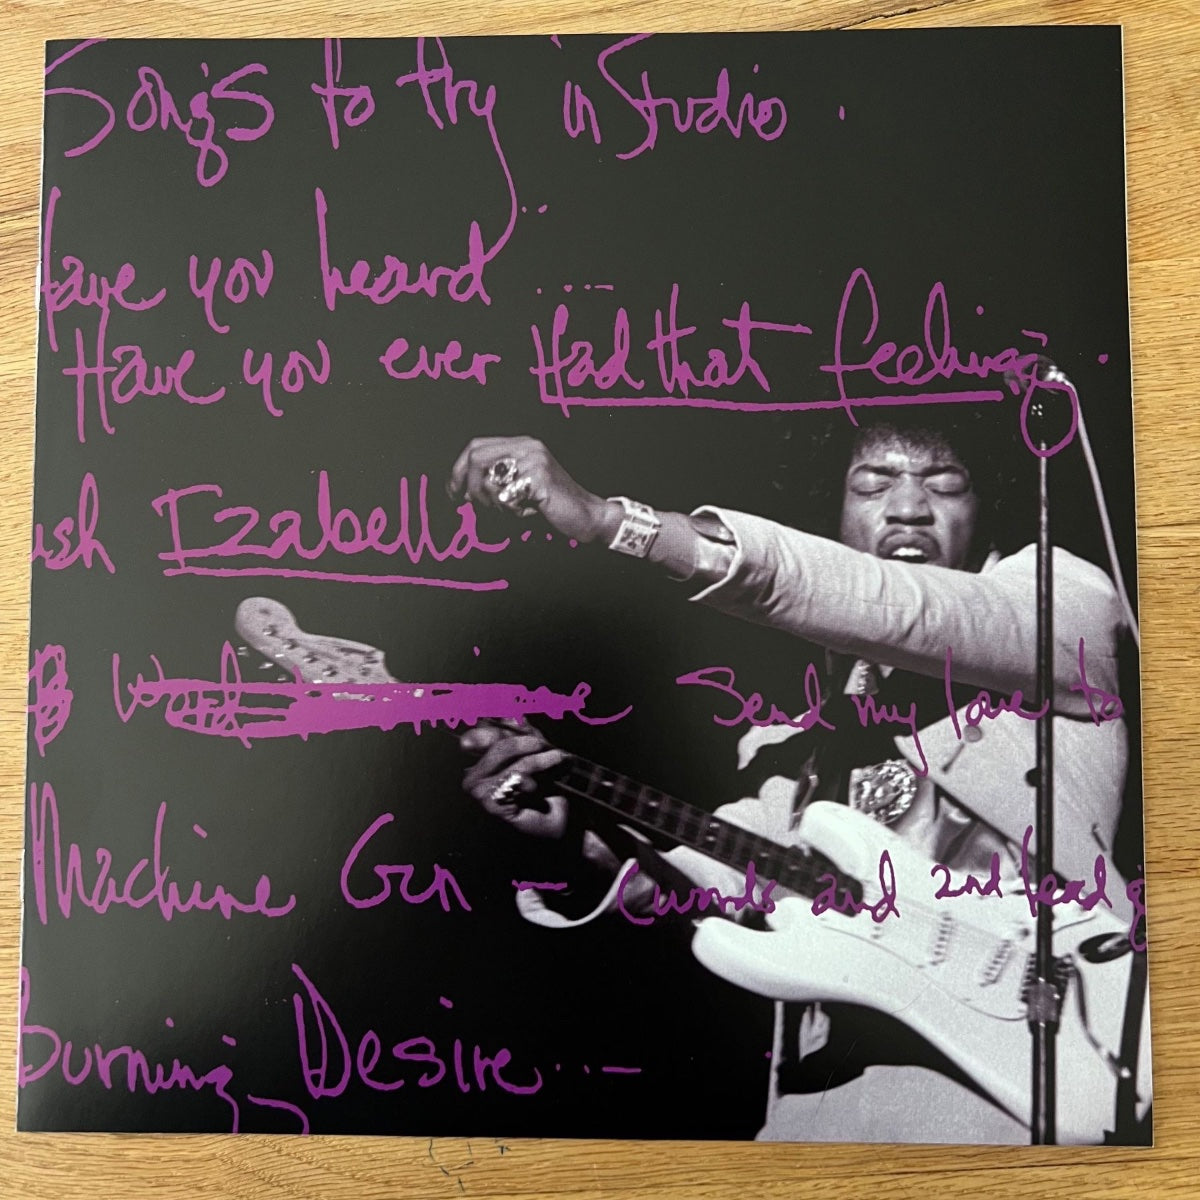 Songs to try in Studio.
Have you heard ....
Have you ever Had that feeling.
ush Izabella...
Send my love to
Machine Gun - (words and 2nd lead g
Burning Desire...-